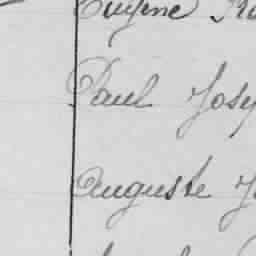 Eugène
Paul Jose
Auguste J